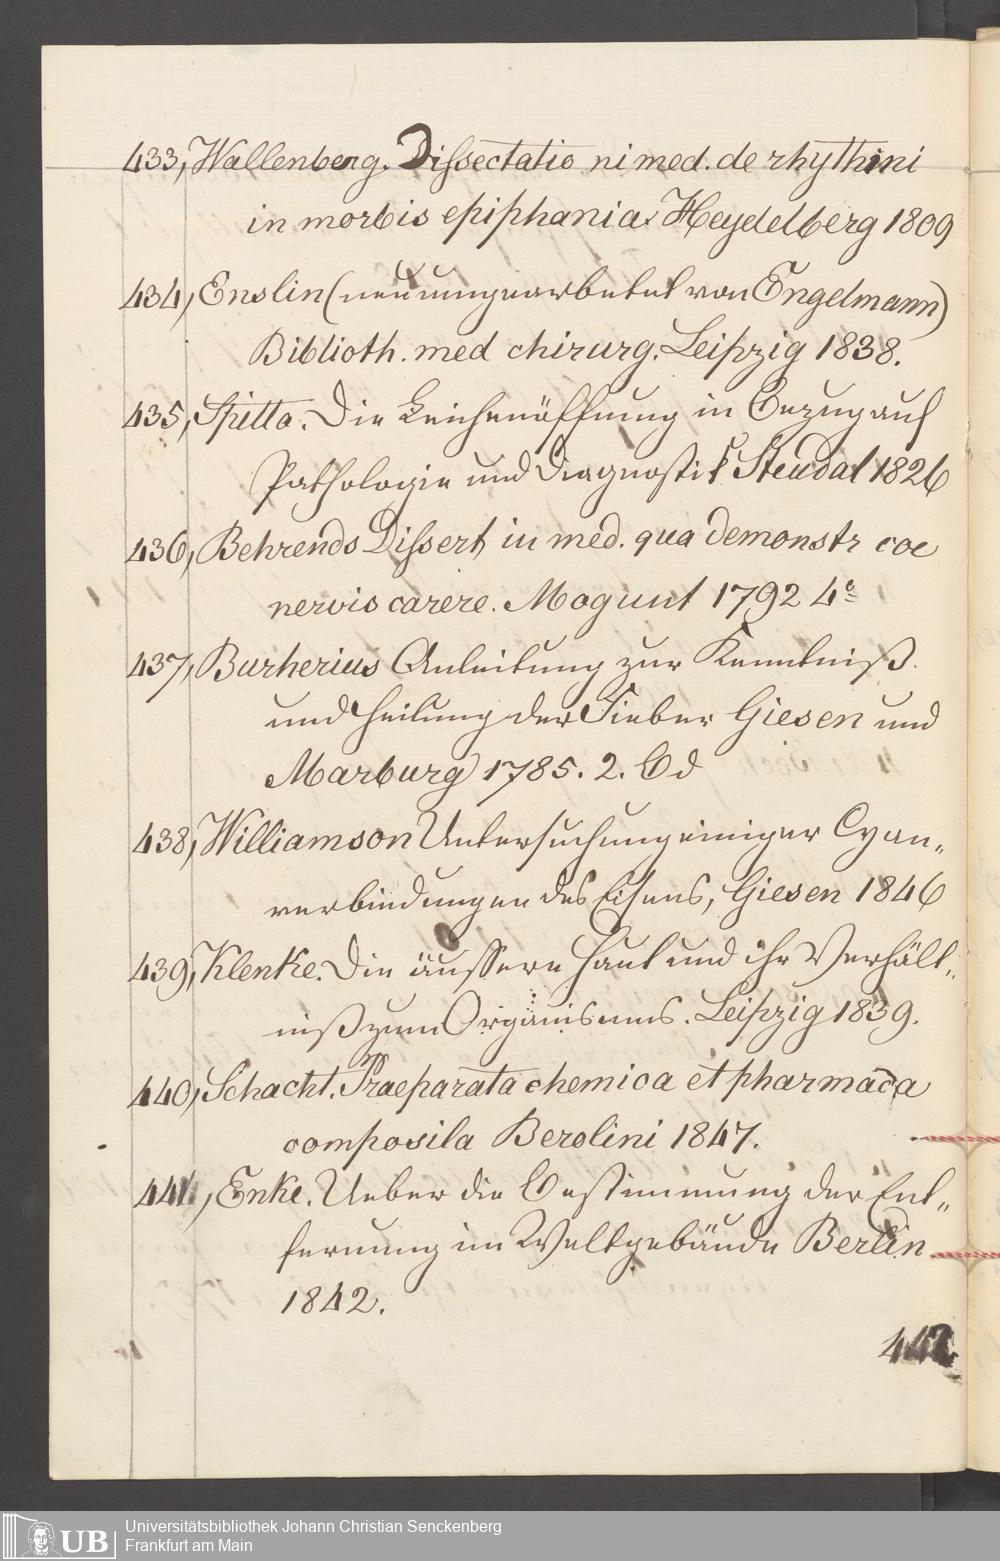 433, Wallenberg. Dissectatio ni med. de rhythini
in morbis epiphania. Heydelberg 1809
434, Enslin (neu umgearbeitet von Engelmann)
Biblioth. med chirurg. Leipzig 1838.
435, Spitta. Die Leichenöffnung in Bezug auf
Pathologie und Diagnostik Stendal 1826
436, Behrends Dissert in med. qua demonstr coe
nervis carere. Mogunt 1792 4°
437, Burherius Anleitung zur Kenntniß
und Heilung der Fieber Giesen und
Marburg 1785. 2. Bd
438, Williamson Untersuchung einiger Cyan„
verbindungen des Eisens, Giesen 1846
439, Klenke. Die äussere Haut und ihr Verhält„
niß zum Organismus. Leipzig 1839.
440, Schacht. Praeparata chemica et pharmaca
composita Berolini 1847.
441, Enke. Ueber die Bestimmung der Ent„
fernung im Weltgebäude Berlin
1842.
442
UB
Universitätsbibliothek Johann Christian Senckenberg
Frankfurt am Main